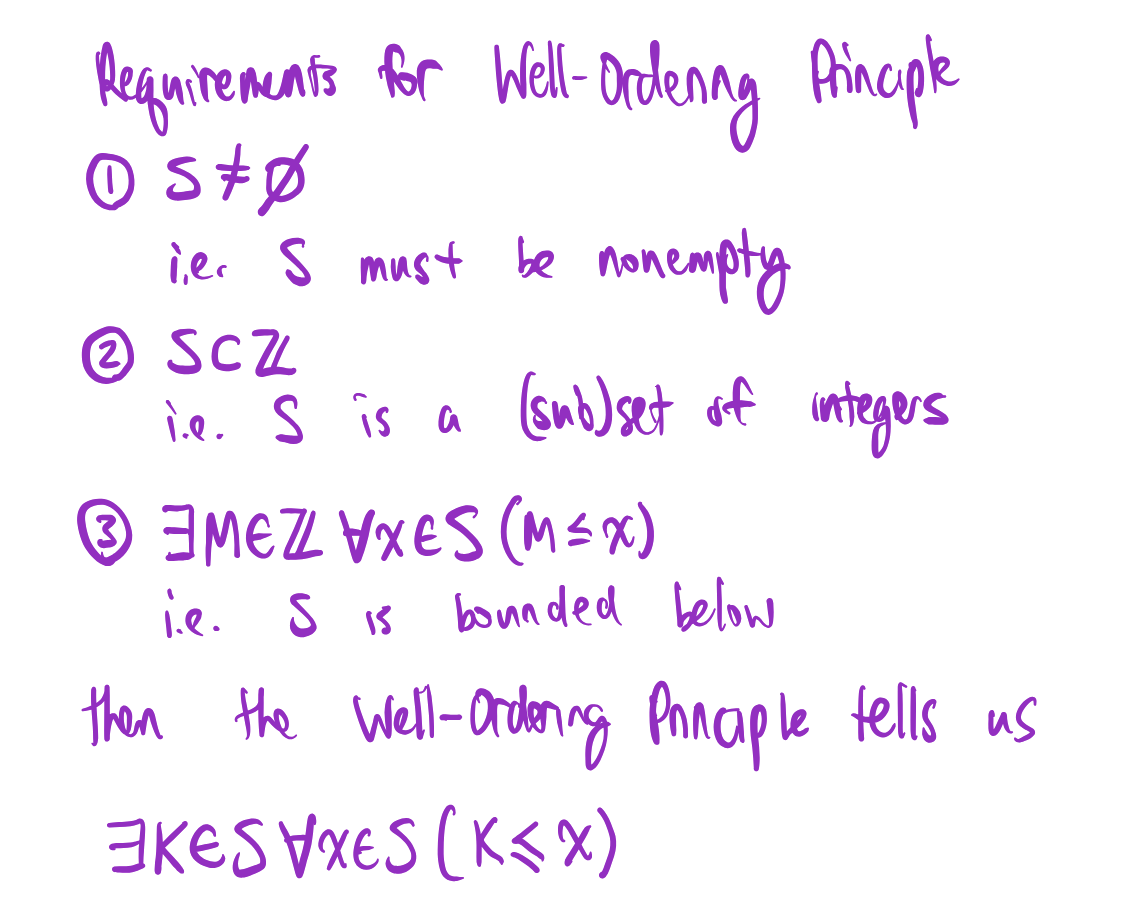 Requirements for Well-Ordering Principle
① S ≠ ∅
i.e. S must be nonempty
② S ⊂ ℤ
i.e. S is a (sub)set of integers
③ ∃M∈ℤ ∀x∈S (M ≤ x)
i.e. S is bounded below
then the Well-Ordering Principle tells us
∃K∈S ∀x∈S (K ≤ x)